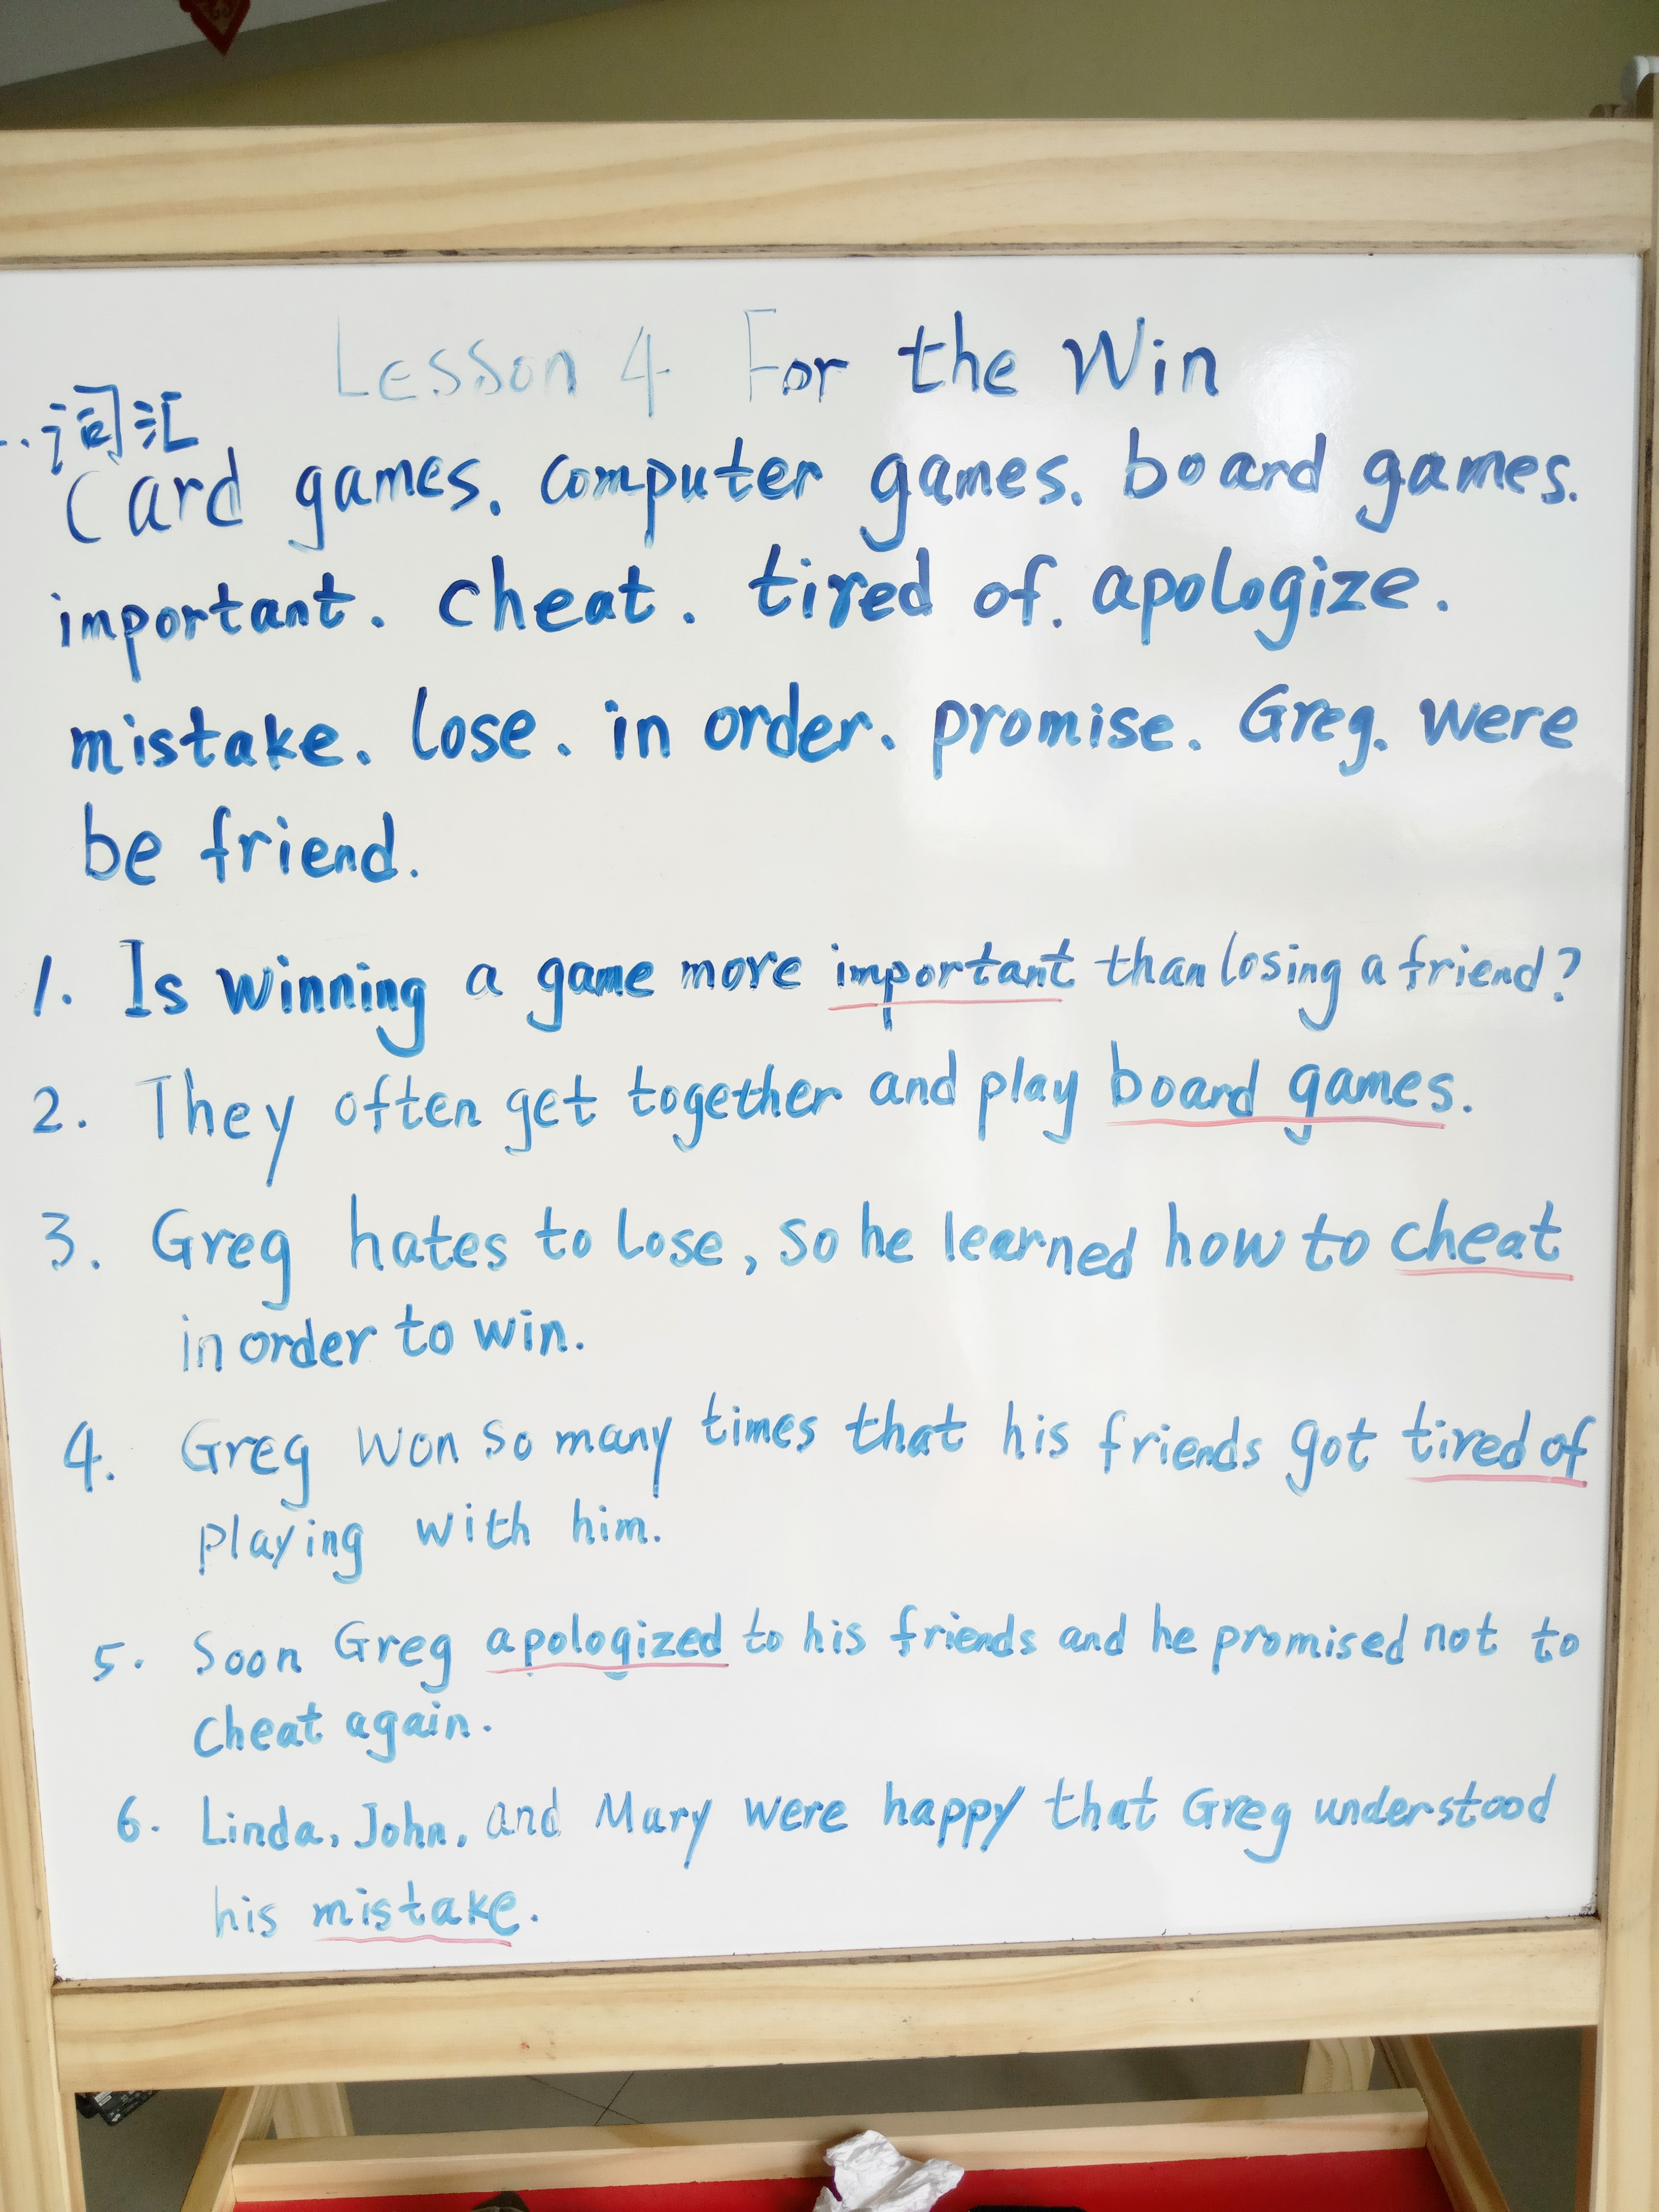 Lesson 4 For the Win
词汇
Card games. computer games. board games.
important. cheat. tired of. apologize.
mistake. lose. in order. promise. Greg. were
be friend.
1. Is winning a game more important than losing a friend?
2. They often get together and play board games.
3. Greg hates to lose, so he learned how to cheat
in order to win.
4. Greg won so many times that his friends got tired of
playing with him.
5. Soon Greg apologized to his friends and he promised not to
cheat again.
6. Linda, John, and Mary were happy that Greg understood
his mistake.